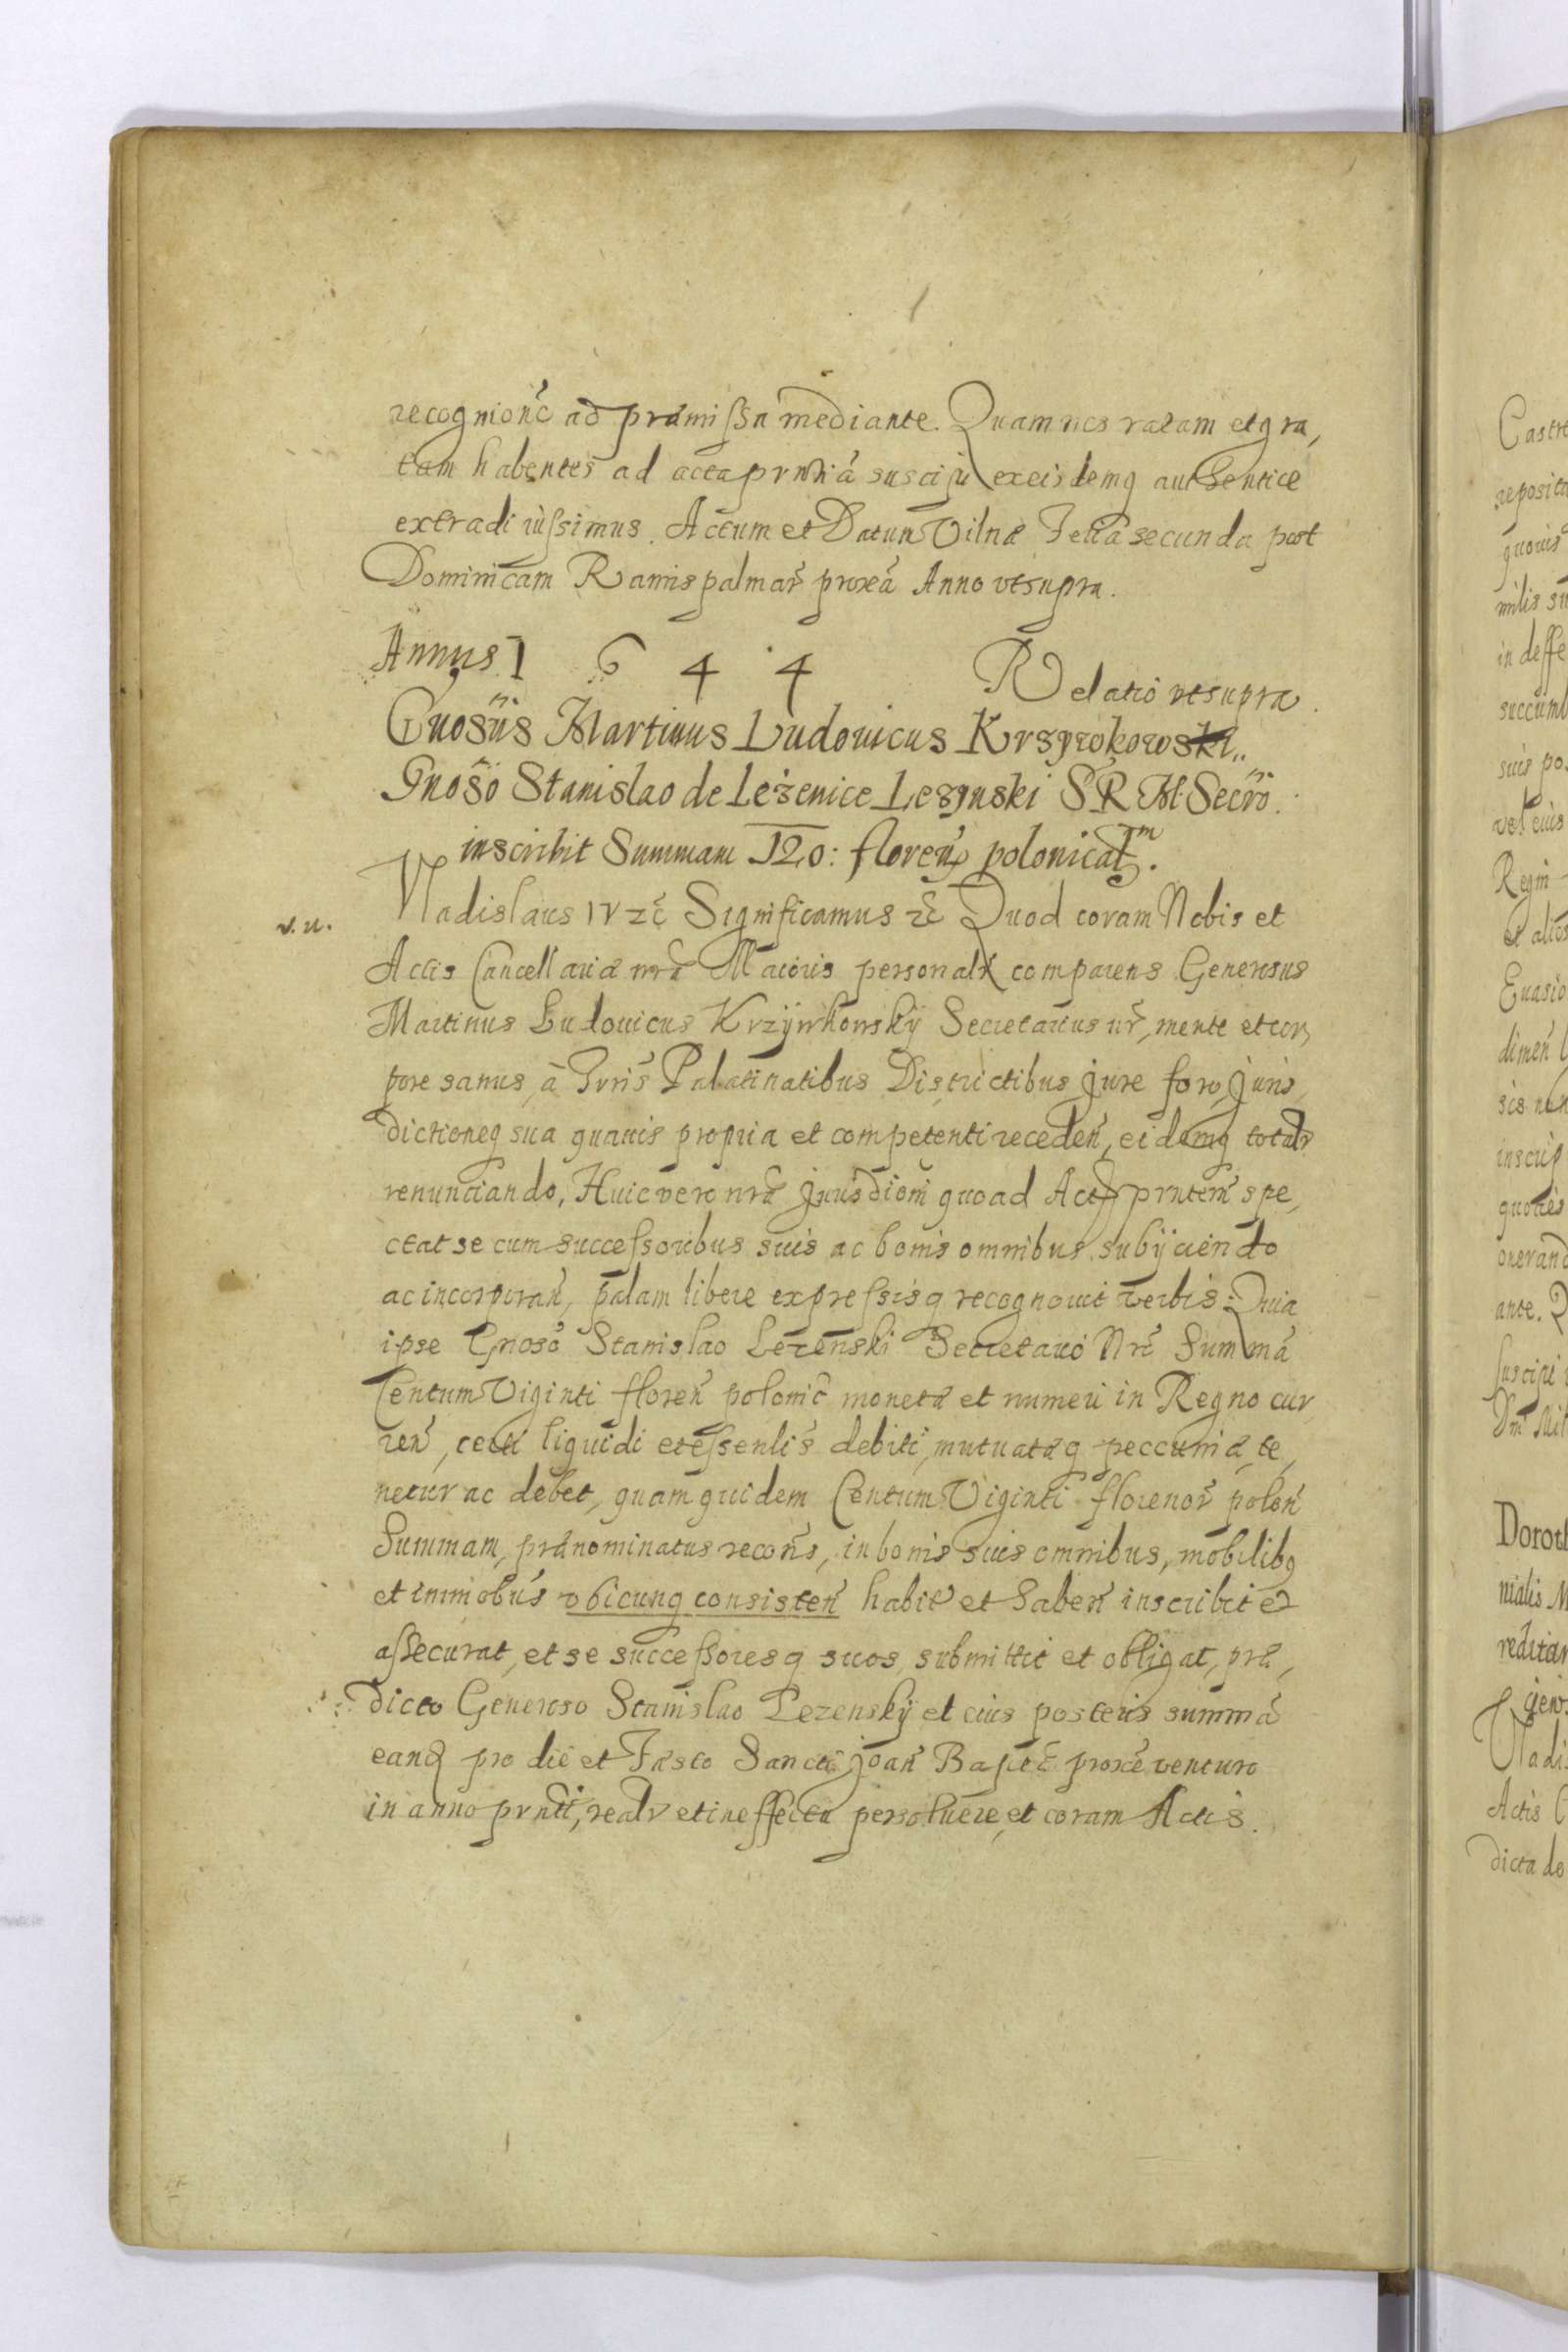 recognionẽ ad præmissa mediante. Quam nos ratam et gra,
tam habentes ad acta prntiã suscipi ex eisdemq authentice
extradi iussimus. Actum et Datum Vilnæ Feria secunda post
Dominicam Ramispalmar̃ proxã Anno vtsupra.
Annus 1 6 4 4 Relatio vtsupra.
Gnosus Martinus Ludouicus Krzywkowski
Gnoso Stanislao de Leżenice Lezynski S R M Secrõ.
inscribit Summam 120: floren̄ polonicalm.
v. u. Vladislaus IV zc̃ Significamus zc̃ Quod coram Nobis et
Actis Cancellariæ nræ Maioris personalr comparens Generosus
Martinus Ludouicus Krzÿwkowskÿ Secretarius nr̃, mente et cor,
pore sanus, à Prris Palatinatibus Districtibus Jure foro, Juris,
dictioneq sua quauis propria et competenti receden̄, eidemq totalr
renunciando, Huic vero nræ Jurisdioni quoad Actũ prntem spe,
ctat se cum successoribus suis ac bonis omnibus subÿciendo
ac incorporan̄, palam libere expressisq recognouit verbis: Quia
ipse Gnoso Stanislao Lezenski Secretario Nrõ Summã
Centum Viginti floren̄ polonic̃ monetæ et numeri in Regno cur
ren̄, certi liquidi et essenlis debiti, mutuatæq peccuniæ, te,
netur ac debet, quam quidem Centum Viginti florenor̃ polon̄
Summam, prænominatus recon̄s, in bonis suis omnibus, mobilibq
et immobus vbicunq consisten̄ habit̃ et haben̄ inscribit et
assecurat, et se successoresq suos, submittit et obligat, præ,
dicto Generoso Stanislao Lezenskÿ et eius posteris summã
eandẽ pro die et Festo Sancti Joan̄ Baptæ proxẽ venturo
in anno prnti, realr et in effectu persoluere, et coram Actis.